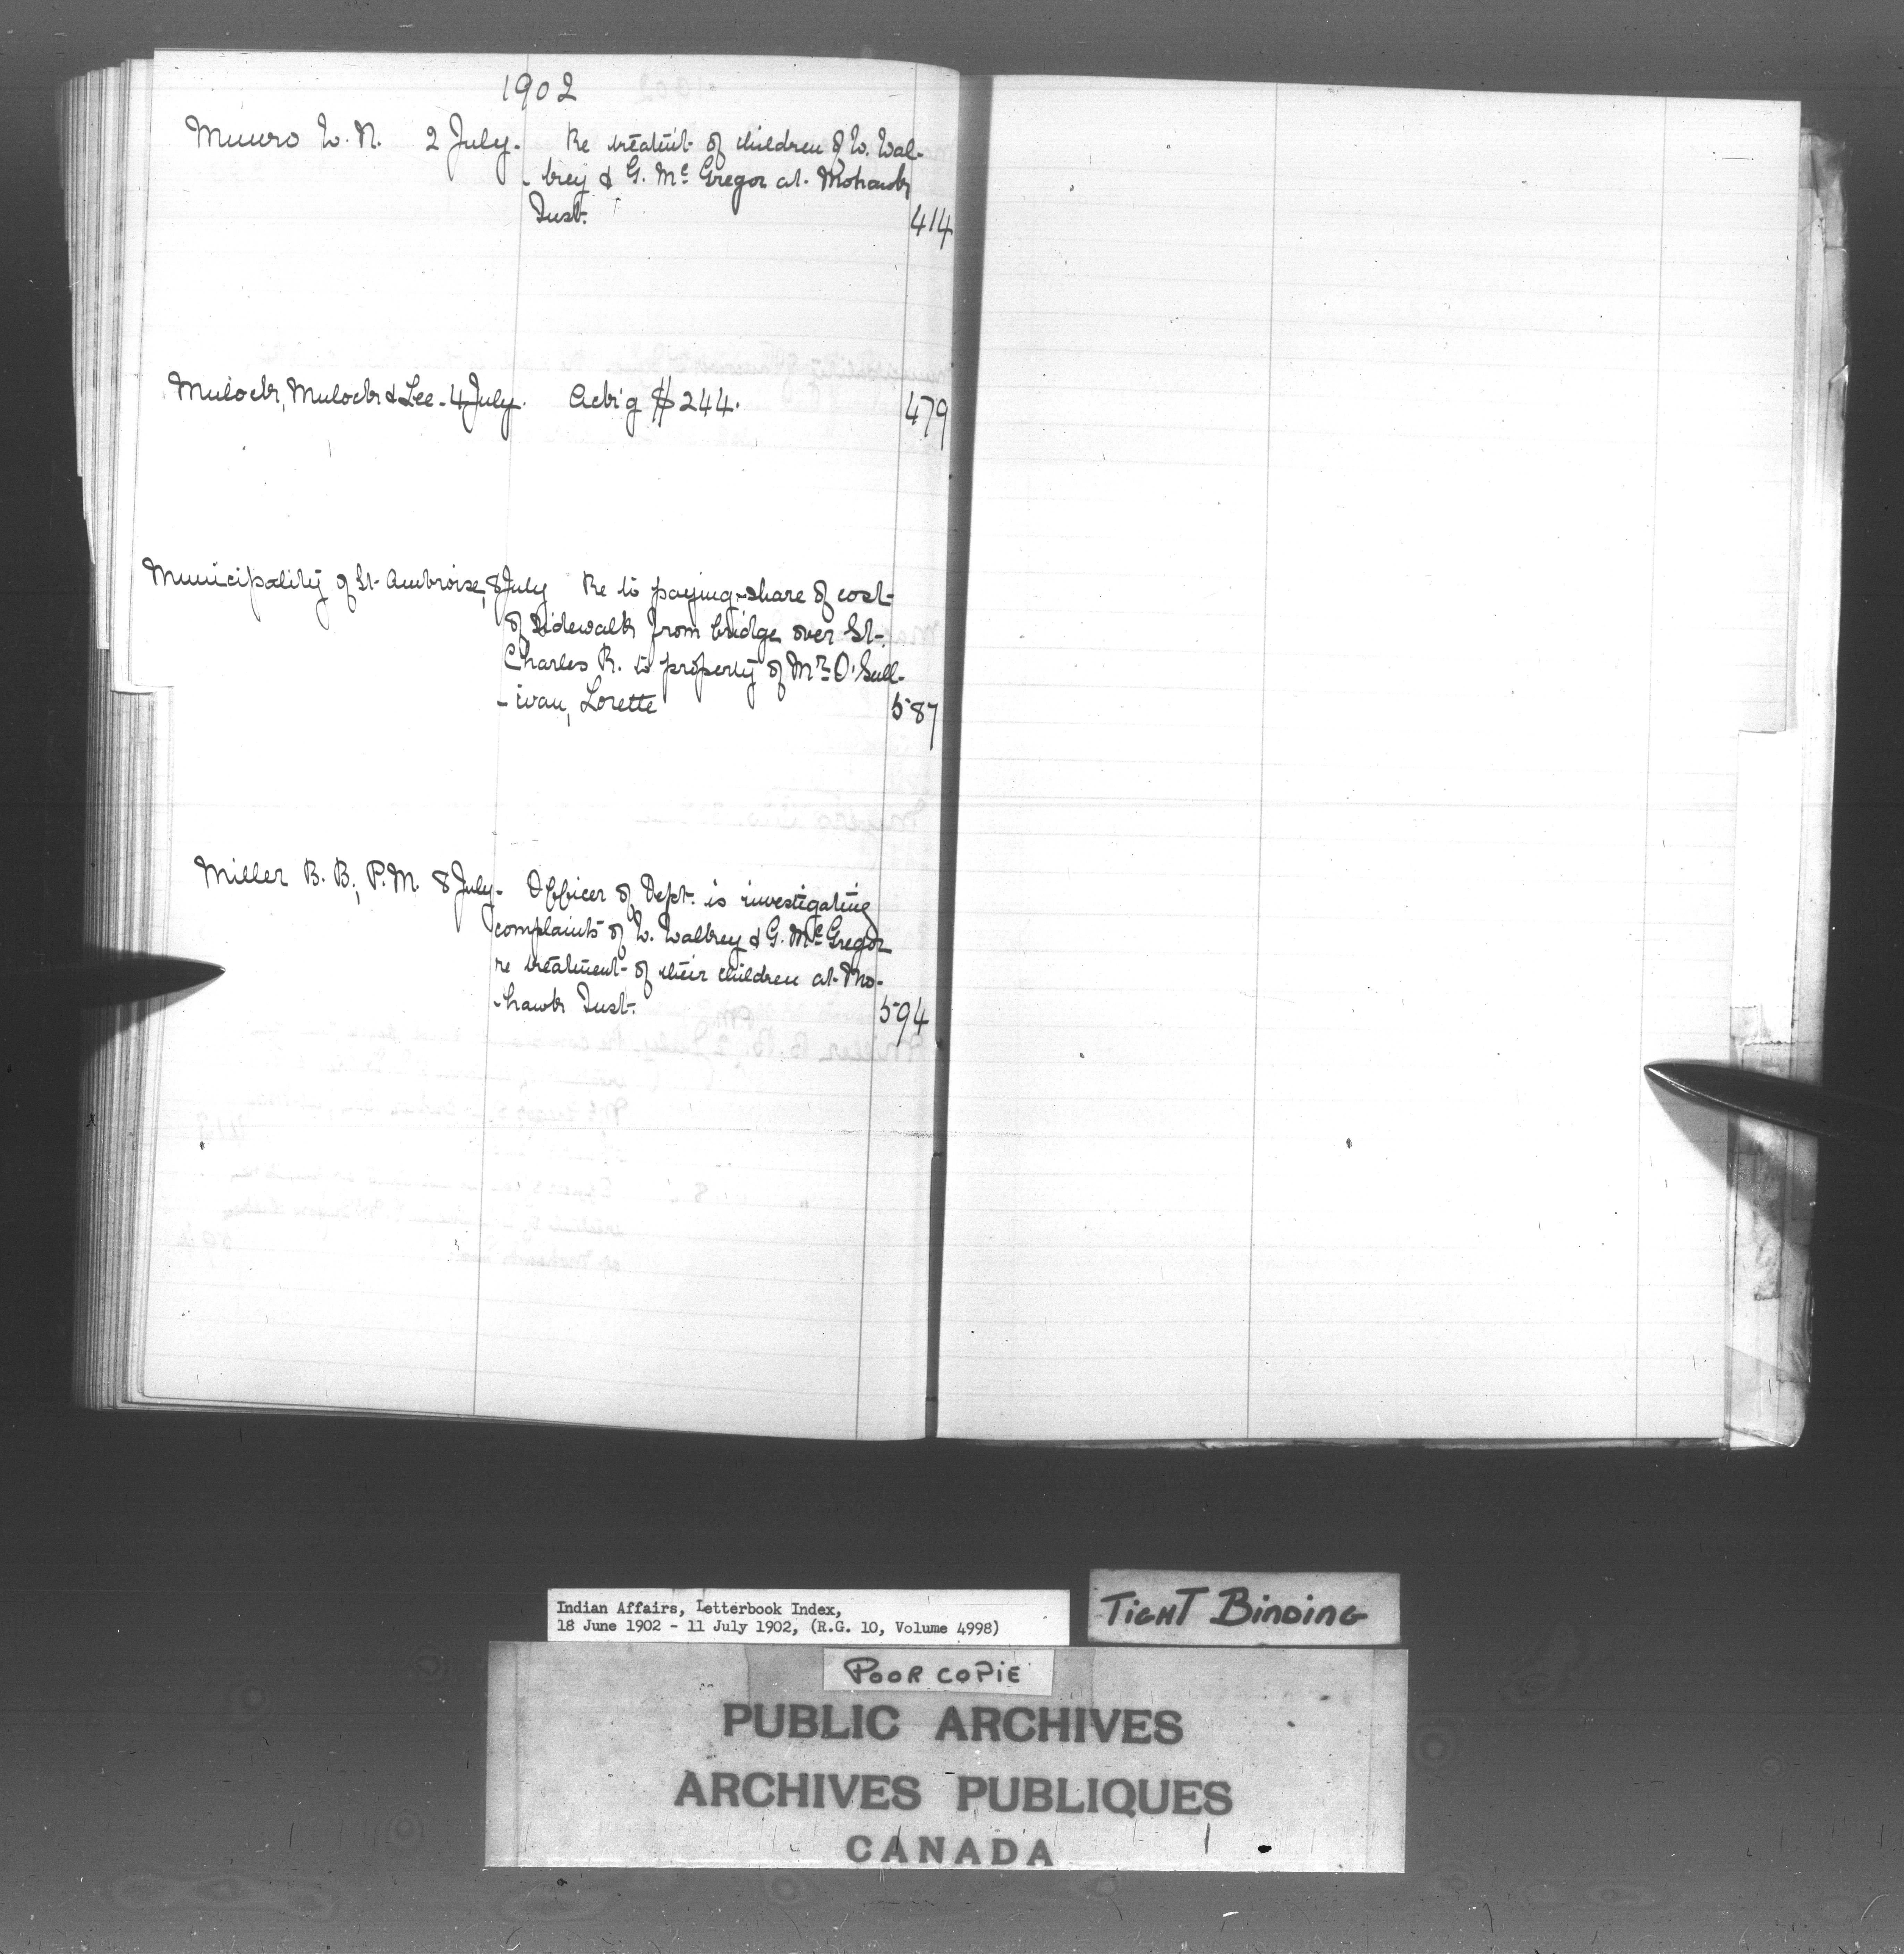 1902
Munro W. N. 2 July. Re treatm't of children of W. Wal-
-brey & G. McGregor at Mohawk
Inst. 414
Mulock, Mulock & Lee. 4 July. Ack'g $244. 479
Municipality of St. Ambroise, 8 July Re to paying share of cost
of sidewalk from bridge over St.
Charles R. to property of Mr. O'Sull-
-ivan, Lorette 587
Miller B. B., P.M. 8 July. Officer of Dept. is investigating
complaints of W. Walbrey & G. McGregor
re treatment of their children at Mo-
-hawk Inst. 594
Indian Affairs, Letterbook Index,
18 June 1902 - 11 July 1902, (R.G. 10, Volume 4998)
TIGHT BINDING
POOR COPIE
PUBLIC ARCHIVES
ARCHIVES PUBLIQUES
CANADA